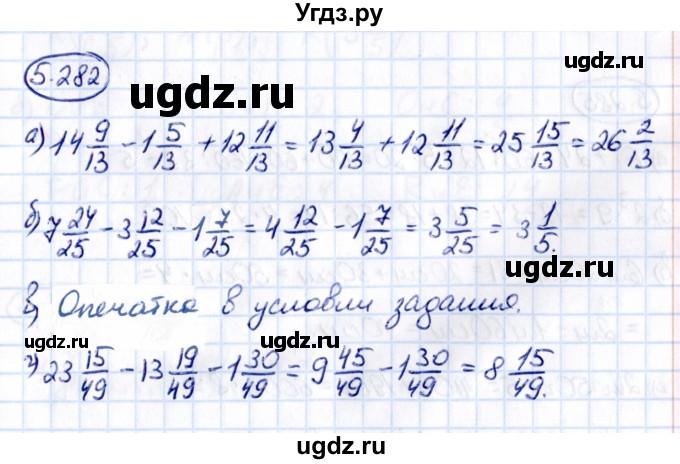 Угдз.ру
5.282
ugdz.ru ugdz.ru
а) 14 9/13 - 1 5/13 + 12 11/13 = 13 4/13 + 12 11/13 = 25 15/13 = 26 2/13
ugdz.ru ugdz.ru
б) 7 24/25 - 3 12/25 - 1 7/25 = 4 12/25 - 1 7/25 = 3 5/25 = 3 1/5.
ugdz.ru
в) Опечатка в условии задания.
ugdz.ru ugdz.ru
г) 23 15/49 - 13 19/49 - 1 30/49 = 9 45/49 - 1 30/49 = 8 15/49.
ugdz.ru